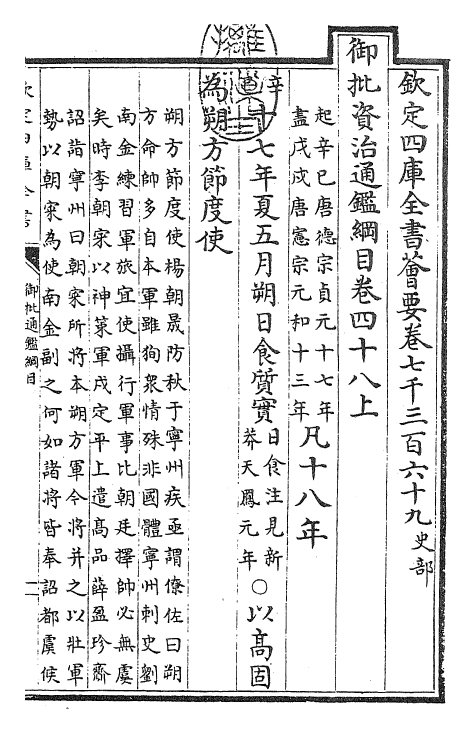 欽定四庫全書薈要卷七千三百六十九史部
御批資治通鑑綱目卷四十八上
起辛巳唐德宗貞元十七年
盡戊戌唐憲宗元和十三年
凡十八年
辛巳
十七年夏五月朔日食質實
日食注見新
莽天鳳元年
○以高固
為朔方節度使
朔方節度使楊朝晟防秋于寧州疾亟謂僚佐曰朔
方命帥多自本軍雖狥衆情殊非國體寧州刺史劉
南金練習軍旅宜使攝行軍事比朝廷擇帥必無虞
矣時李朝寀以神策軍戍定平上遣高品薛盈珍齎
詔詣寧州曰朝寀所將本朔方軍今將并之以壯軍
勢以朝寀為使南金副之何如諸將皆奉詔都虞候
欽定四庫全書
御批通鑑綱目
一